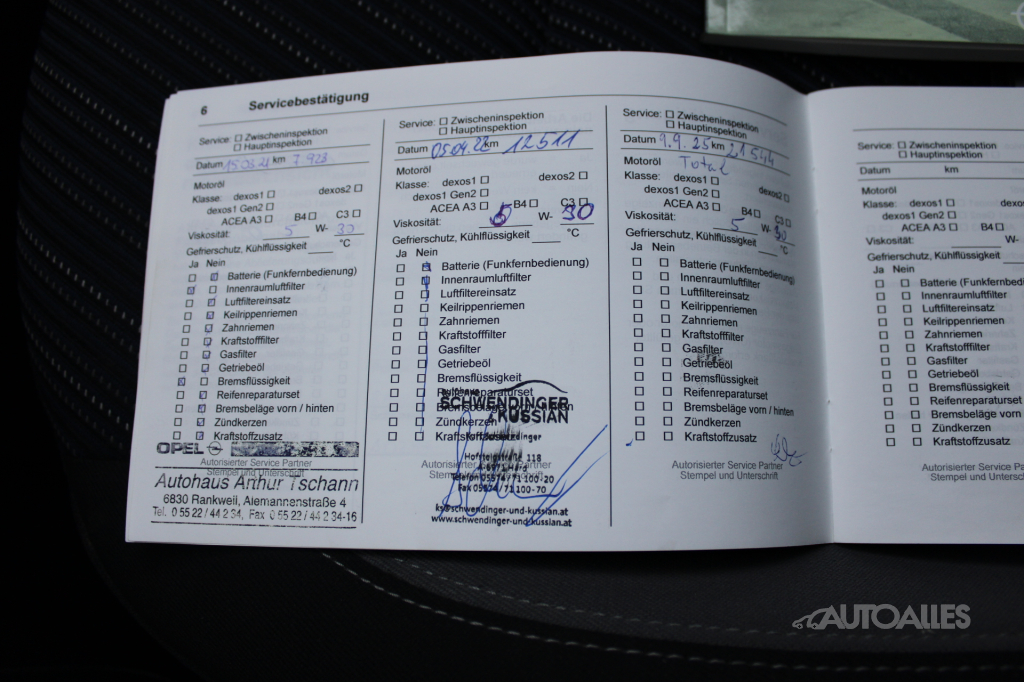 6 Servicebestätigung
Service: ☐ Zwischeninspektion
☐ Hauptinspektion
Datum 15.03.21 km 7 923
Motoröl
Klasse: dexos1 ☐ dexos2 ☐
dexos1 Gen2 ☐
ACEA A3 ☐ B4 ☐ C3 ☐
Viskosität: 5 W- 30
Gefrierschutz, Kühlflüssigkeit ____ °C
Ja Nein
Batterie (Funkfernbedienung)
Innenraumluftfilter
Luftfiltereinsatz
Keilrippenriemen
Zahnriemen
Kraftstofffilter
Gasfilter
Getriebeöl
Bremsflüssigkeit
Reifenreparaturset
Bremsbeläge vorn / hinten
Zündkerzen
Kraftstoffzusatz
OPEL
Autorisierter Service Partner
Stempel und Unterschrift
Autohaus Arthur Tschann
6830 Rankweil, Alemannenstraße 4
Tel. 0 55 22 / 44 2 34, Fax 0 55 22 / 44 2 34-16
Service: ☐ Zwischeninspektion
☐ Hauptinspektion
Datum 05.04.22 km 12511
Motoröl
Klasse: dexos1 ☐ dexos2 ☐
dexos1 Gen2 ☐
ACEA A3 ☐ B4 ☐ C3 ☐
Viskosität: 5 W- 30
Gefrierschutz, Kühlflüssigkeit ____ °C
Ja Nein
Batterie (Funkfernbedienung)
Innenraumluftfilter
Luftfiltereinsatz
Keilrippenriemen
Zahnriemen
Kraftstofffilter
Gasfilter
Getriebeöl
Bremsflüssigkeit
Reifenreparaturset
Bremsbeläge vorn / hinten
Zündkerzen
Kraftstoffzusatz
SCHWENDINGER
KUSSIAN
Autorisierter Service Partner
Stempel und Unterschrift
Telefon 05574 / 71 100-20
Fax 05574 / 71 100-70
ks@schwendinger-und-kussian.at
www.schwendinger-und-kussian.at
Service: ☐ Zwischeninspektion
☐ Hauptinspektion
Datum 9.9.25 km 21544
Motoröl Total
Klasse: dexos1 ☐
dexos1 Gen2 ☐ dexos2 ☐
ACEA A3 ☐ B4 ☐ C3 ☐
Viskosität: 5 W- 30
Gefrierschutz, Kühlflüssigkeit ____ °C
Ja Nein
Batterie (Funkfernbedienung)
Innenraumluftfilter
Luftfiltereinsatz
Keilrippenriemen
Zahnriemen
Kraftstofffilter
Gasfilter
Getriebeöl
Bremsflüssigkeit
Reifenreparaturset
Bremsbeläge vorn / hinten
Zündkerzen
Kraftstoffzusatz
Autorisierter Service Partner
Stempel und Unterschrift
Service: ☐ Zwischeninspektion
☐ Hauptinspektion
Datum km
Motoröl
Klasse: dexos1 ☐
dexos1 Gen2 ☐
ACEA A3 ☐ B4 ☐
Viskosität: ____ W-
Gefrierschutz, Kühlflüssigkeit
Ja Nein
Batterie (Funkfernbed
Innenraumluftfilter
Luftfiltereinsatz
Keilrippenriemen
Zahnriemen
Kraftstofffilter
Gasfilter
Getriebeöl
Bremsflüssigkeit
Reifenreparaturset
Bremsbeläge vorn
Zündkerzen
Kraftstoffzusatz
Autorisierter Service Partner
Stempel und Untersch
AUTOALLES